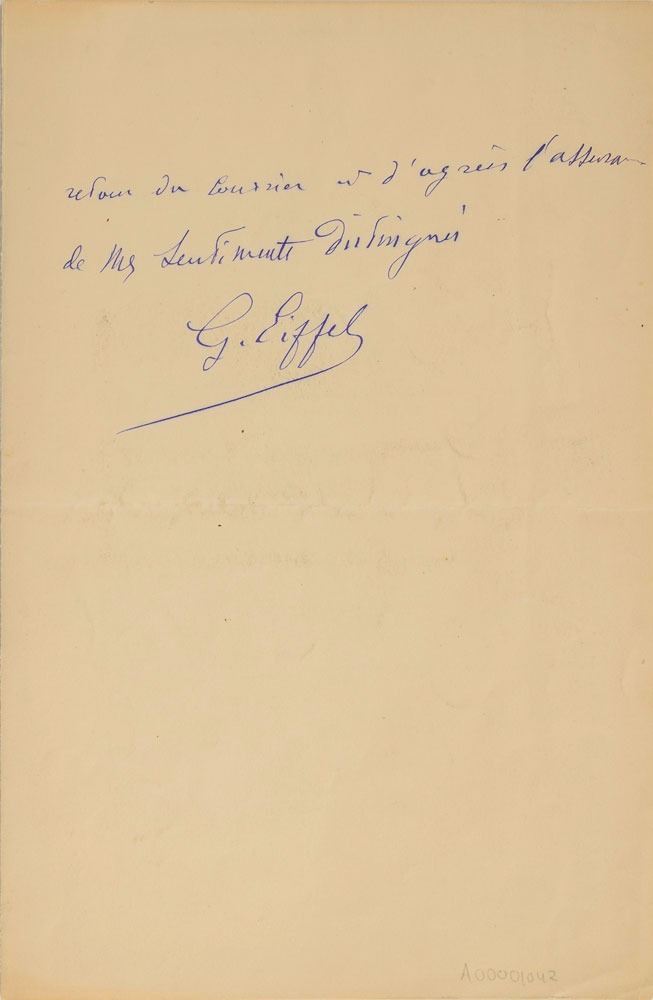 retour du courrier et d'agréer l'assurance
de mes sentiments distingués
G. Eiffel
A00001042